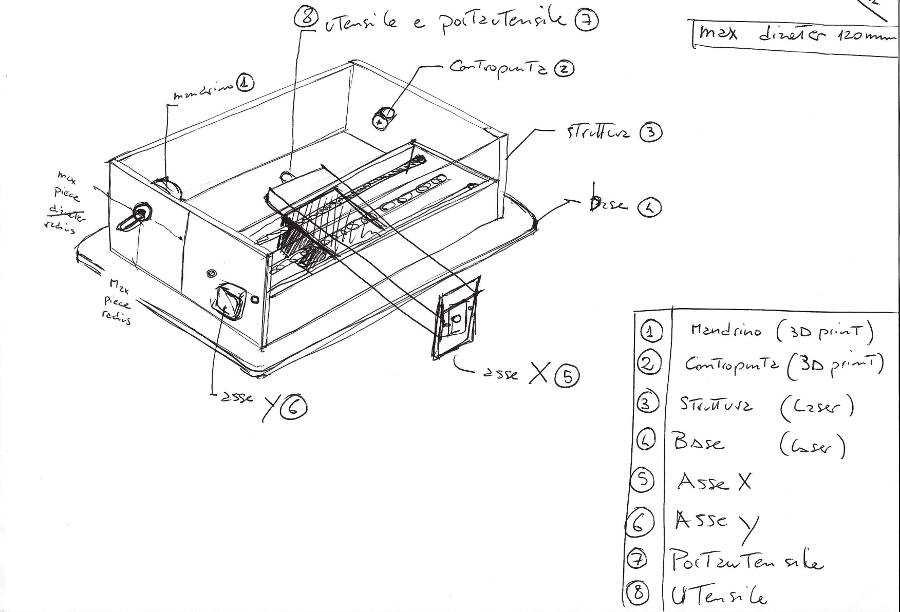 8 utensile e portautensile 7
max diameter 120mm
Contropunta 2
mandrino 1
struttura 3
max
piece
diameter
radius
base 4
Max
piece
radius
asse X 5
asse Y 6
1 Mandrino (3D print)
2 Contropunta (3D print)
3 Struttura (Laser)
4 Base (Laser)
5 Asse X
6 Asse Y
7 Portautensile
8 Utensile